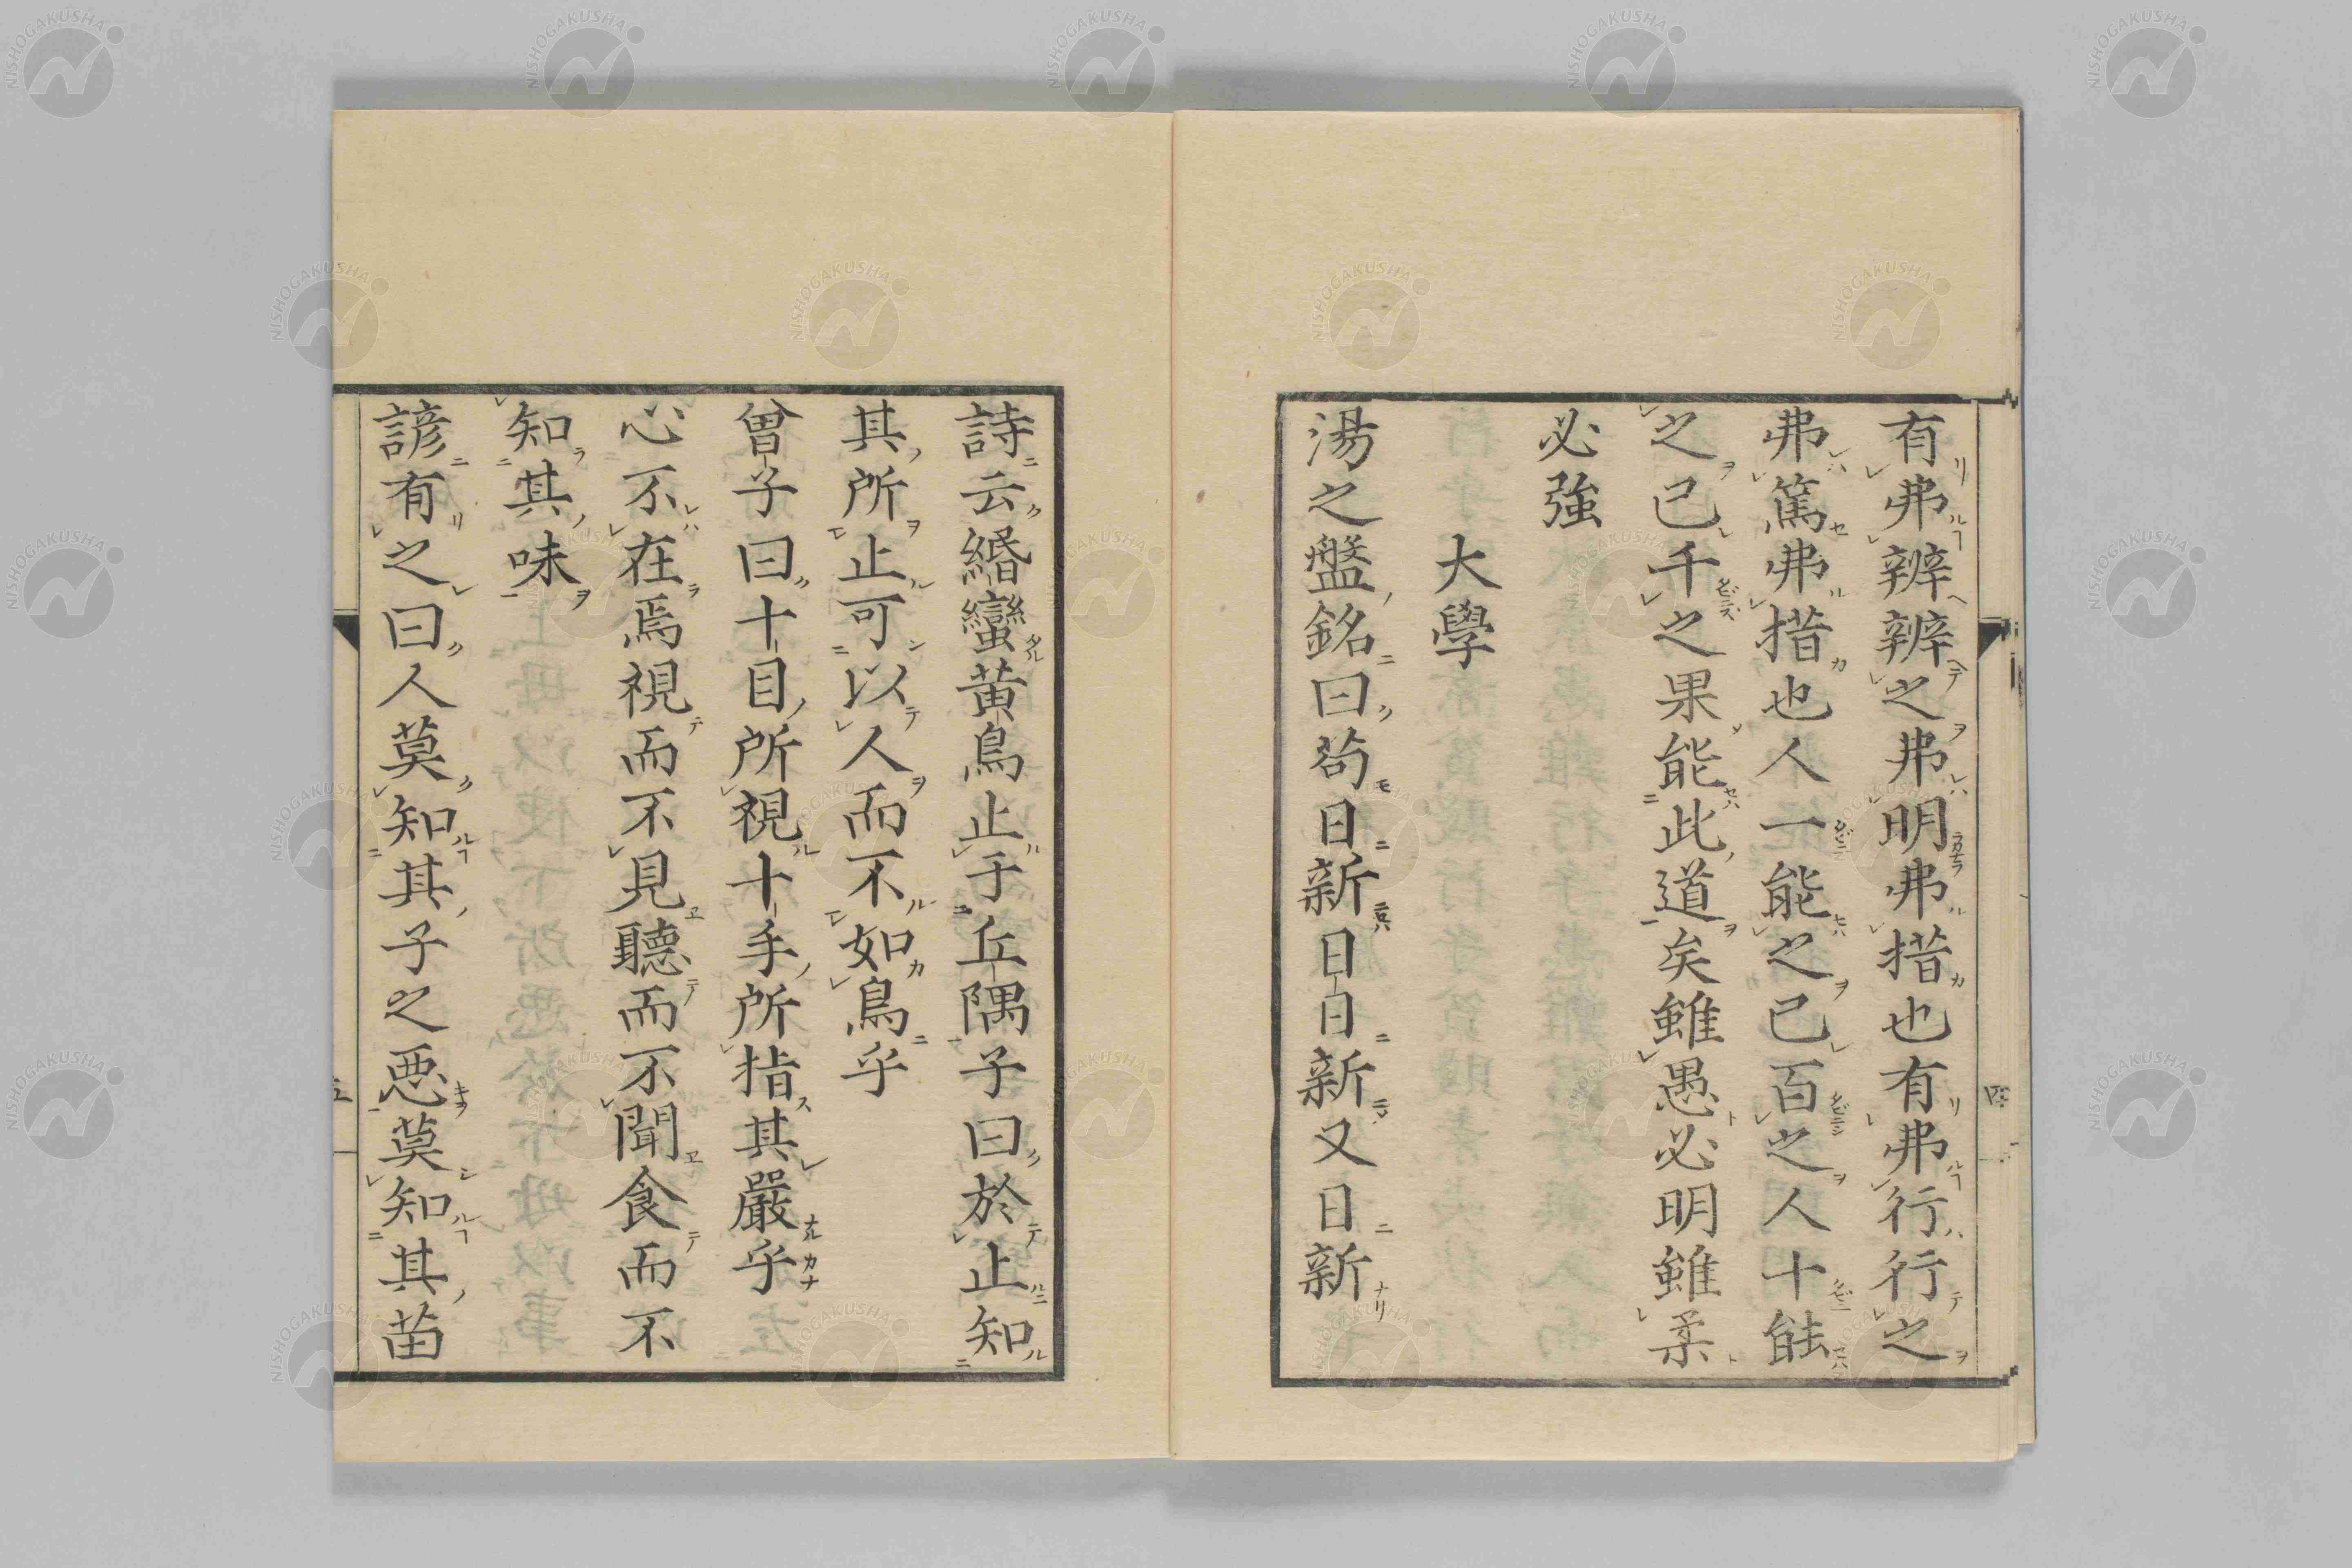 有弗辨辨之弗明弗措也有弗行行之
弗篤弗措也人一能之己百之人十能
之己千之果能此道矣雖愚必明雖柔
必強
大學
湯之盤銘曰苟日新日日新又日新
詩云緡蠻黄鳥止于丘隅子曰於止知
其所止可以人而不如鳥乎
曾子曰十目所視十手所指其嚴乎
心不在焉視而不見聽而不聞食而不
知其味
諺有之曰人莫知其子之惡莫知其苗
NISHOGAKUSHA